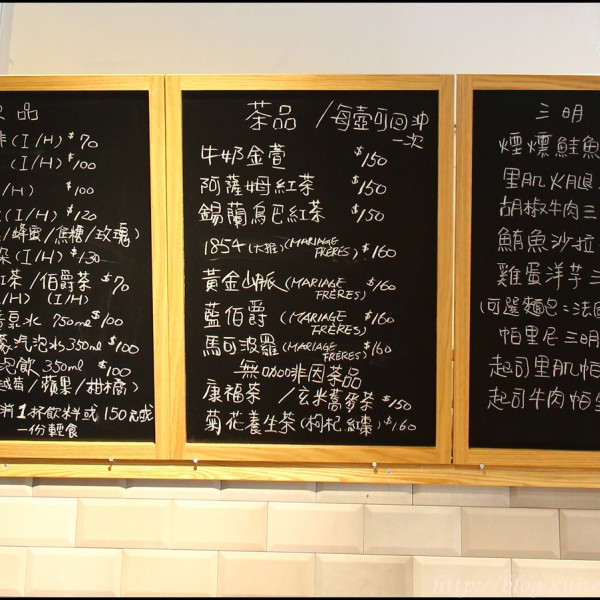 品
(I/H) $70
(I/H) $100
/H) $100
(I/H) $120
/蜂蜜/焦糖/玫瑰)
(I/H) $130
紅茶/伯爵茶 $70
(I/H) (I/H)
水 750ml $100
汽泡水 350ml $100
泡飲 350ml $100
越莓/蘋果/柑橘)
消1杯飲料或150元或
一份輕食
茶品 /每壺可回沖
一次
牛奶金萱 $150
阿薩姆紅茶 $150
錫蘭烏巴紅茶 $150
1854(大推)(MARIAGE FRÈRES) $160
黃金山脈(MARIAGE FRÈRES) $160
藍伯爵 (MARIAGE FRÈRES) $160
馬可波羅(MARIAGE FRÈRES) $160
無咖啡因茶品
康福茶 /玄米蕎麥茶 $150
菊花養生茶(枸杞.紅棗) $160
三明
煙燻鮭魚
里肌火腿
胡椒牛肉三
鮪魚沙拉
雞蛋洋芋三
(可選麵包:法國
帕里尼三明
起司里肌帕
起司牛肉帕里